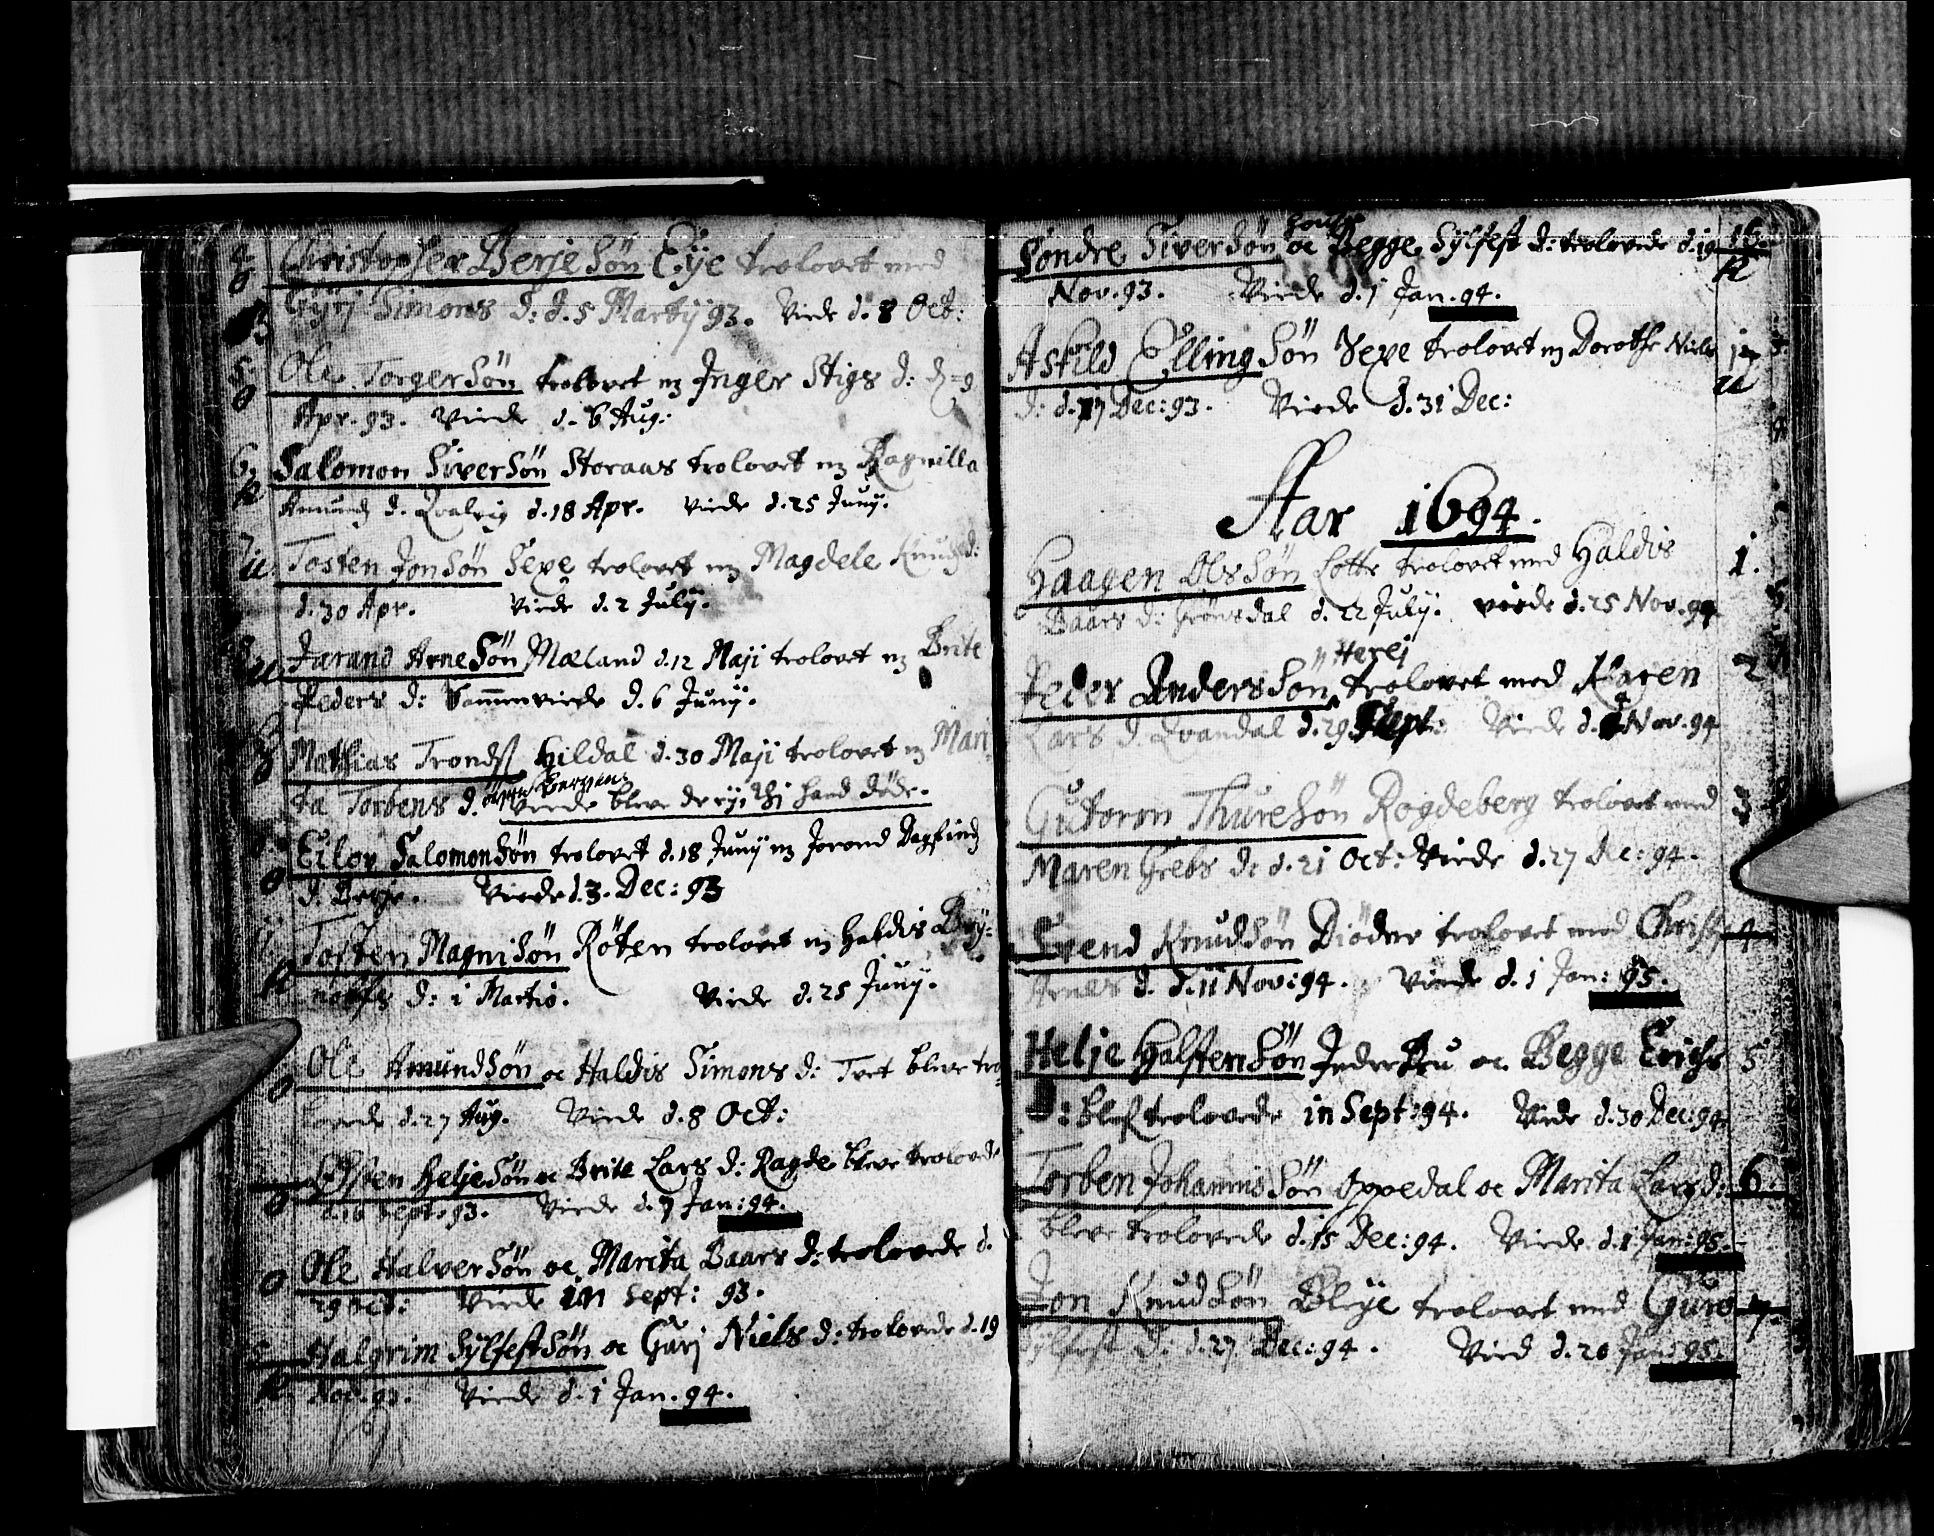 4 Christopher BerjeSøn Eije trolovet med
Gyrj Simons D: d. 5 Martij 93. Viede d. 8 Oct:
5 Ole TorgerSøn trolovet m Inger Stigs d:
Apr. 93. Viede d. 6 Aug:
6. Salomon SiverSøn Storaas trolovet m Ragnilla
Amunds d. Qvalvig d. 18 Apr. Viede d. 25 Junij.
Tosten JonSøn Sexe trolovet m Magdele Knuds d:
d. 30 Apr. Viede d. 2 Julij.
Jarand ArneSøn Mæland d. 12 Maji trolovet m Brite
Peders d: Sammenviede d. 6 Junij.
Mathias Tronds Hildal d. 30 Maji trolovet m Mari
ta Torbens d. Viede bleve de eij, thi hand døde.
Eilov SalomonSøn trolovet d. 18 Junij m Jorond Dagfinds
d. Viede d. 3. Dec: 93
Tosten MagniSøn Røten trolovet m Haldis Bry-
nolfs d: 1 Martio. Viede d. 25 Junij.
Ole AmundSøn oc Haldis Simons d: Tvet bleve tro-
lovede d. 27 Aug. Viede d. 8 Oct:
HeljeSøn oc Brite Lars d: Ragde bleve trolovede
d. 10 Sept. 93. Viede d. 7 Jan: 94.
Ole HalverSøn oc Marita Baars d: trolovede d.
29 Viede in Sept: 93.
Halgrim SylfestSøn oc Gurj Niels d: trolovede d. 19
Nov. 93. Viede d. 1 Jan. 94.
Søndre SiverSøn oc Begge Sylfest d: trolovede d. 19 16.
Nov. 93. Viede d. 1 Jan. 94.
Askild EllingSøn Sexe trolovet m Dorothe Niels 17
d: d. 17 Dec: 93. Viede d. 31 Dec:
Aar 1694.
Haagen OlsSøn Lotte trolovet med Haldis 1.
Baars d: Frønsdal d. 22 Julij. viede d. 25 Nov. 94
Herej
Peder AndersSøn trolovet med Karen 2
Lars d. Qvandal d. 29 Sept: Viede d. 4 Nov. 94
Gutorm ThureSøn Rogdeberg trolovet med 3
Maren Grebs d: d. 21 Oct: Viede d. 27 Dec: 94.
Svend KnudSøn Diødne trolovet med Christ 4
Arnes d. d. 11 Nov: 94. Viede d. 1 Jan: 95.
Helje HalstenSøn JndreBru oc Begge Erichs 5
D: blef trolovede in Sept: 94. Viede d. 30 Dec: 94
Torben JohannisSøn Oppedal oc Marita Lars d: 6.
bleve trolovede d. 15 Dec: 94. Viede d. 1 Jan: 95.
Jon KnudSøn Bleije trolovet med Guro 7.
Sylfest D: d. 27 Dec: 94. Vied d. 20 Jan: 95.